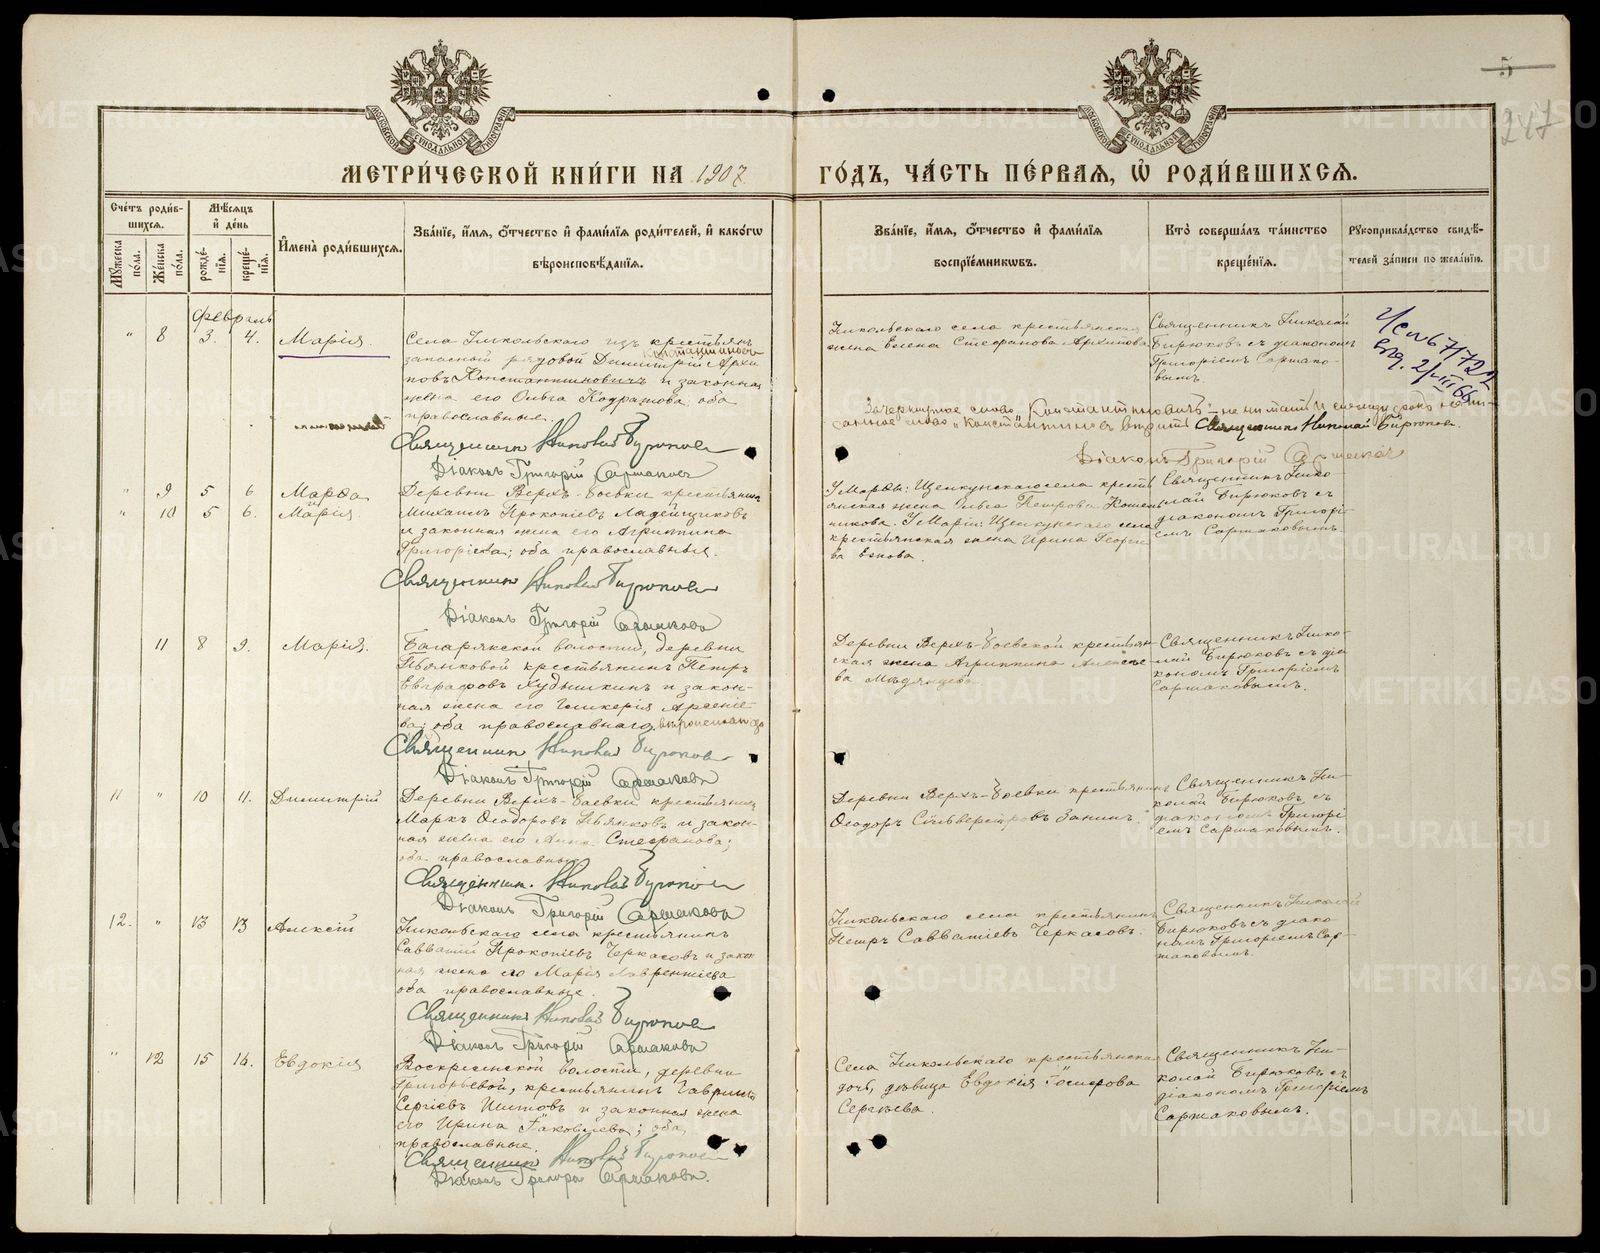 5
247
МОСКОВСКОЙ СѴНОДАЛЬНОЙ ТИПОГРАФІИ
МОСКОВСКОЙ СѴНОДАЛЬНОЙ ТИПОГРАФІИ
МЕТРИ́ЧЕСКОЙ КНИ́ГИ НА 1907 ГО́ДЪ, ЧА́СТЬ ПЕ́РВАѦ, Ѡ҆ РОДИ́ВШИХСѦ.
Сче́тъ роди́вшихсѧ.
Мꙋ́жеска по́ла.
Же́нска по́ла.
Мѣ́сѧцъ и҆ де́нь
рожде́нїѧ.
креще́нїѧ.
И҆мена̀ роди́вшихсѧ.
Зва́нїе, и҆́мѧ, ѻ҆́тчество и҆ фами́лїѧ роди́телей, и҆ како́гѡ
вѣроисповѣ́данїѧ.
Зва́нїе, и҆́мѧ, ѻ҆́тчество и҆ фами́лїѧ
воспрїе́мникѡвъ.
Кто̀ соверша́лъ та́инство
креще́нїѧ.
Рꙋкоприкла́дство свидѣ́-
телей за́писи по жела́нїю.
Февраль
" 8 3. 4. Марія.
Села Никольскаго изъ крестьянъ
запасной рядовой Димитрій Константиновъ Архи-
повъ Константиновичъ и законная
жена его Ольга Кодратова, оба
православные.
Священникъ Николай Бирюковъ
Діаконъ Григорій Саржаковъ
Никольскаго села крестьянская
жена Елена Стефанова Архипова
Священникъ Николай
Бирюковъ съ діакономъ
Григоріемъ Саржако-
вымъ.
2/III 66
Зачеркнутое слово „Константиновичъ" – не читать и между строкъ
слово „Константиновъ" Священникъ Николай Бирюковъ.
Діаконъ Григорій Саржаковъ
" 9 5 6 Марѳа
" 10 5 6. Марія.
Деревни Верхъ-Боевки крестьянинъ
Михаилъ Прокопіевъ Ладейщиковъ
и законная жена его Агриппина
Григоріева; оба православные.
Священникъ Николай Бирюковъ
Діаконъ Григорій Саржаковъ
У Марѳы: Щелкунскаго села кресть-
янская жена Ольга Петрова
У Маріи: Щелкунскаго села
крестьянская жена Ирина Георгі-
ева
Священникъ Нико-
лай Бирюковъ съ
діакономъ Григорі-
емъ Саржаковымъ.
11 8 9. Марія.
Багарякской волости, деревни
крестьянинъ Петръ
Евграфовъ и закон-
ная жена его Гликерія Арсеніе-
ва; оба православнаго вѣроисповѣд.
Священникъ Николай Бирюковъ
Діаконъ Григорій Саржаковъ
Деревни Верхъ-Боевской крестьян-
ская жена Агриппина Алексѣе-
ва
Священникъ Нико-
лай Бирюковъ съ діа-
кономъ Григоріемъ
Саржаковымъ.
11 " 10 11. Димитрій
Деревни Верхъ-Боевки крестьянинъ
Маркъ Ѳеодоровъ Пьянковъ и закон-
ная жена его Анна Стефанова;
оба православные
Священникъ. Николай Бирюковъ
Діаконъ Григорій Саржаковъ
Деревни Верхъ-Боевки крестьянинъ
Ѳеодоръ Сильверстровъ Занинъ.
Священникъ Ни-
колай Бирюковъ съ
діакономъ Григорі-
емъ Саржаковымъ.
12. " 13 13 Алексій
Никольскаго села крестьянинъ
Савватій Прокопіевъ Черкасовъ и закон-
ная жена его Марія Лаврентіева
оба православные.
Священникъ Николай Бирюковъ
Діаконъ Григорій Саржаковъ
Никольскаго села крестьянинъ
Петръ Савватіевъ Черкасовъ.
Священникъ Николай
Бирюковъ съ діако-
номъ Григоріемъ Сар-
жаковымъ.
" 12 15 16. Евдокія
Воскресенской волости, деревни
Григорьевой, крестьянинъ Гавріилъ
Сергіевъ Шитовъ и законная жена
его Ирина Іаковлева; оба
православные
Священникъ Николай Бирюковъ
Діаконъ Григорій Саржаковъ.
Села Никольскаго крестьянская
дочь, дѣвица Евдокія Іосифова
Сергѣева.
Священникъ Ни-
колай Бирюковъ съ
діакономъ Григоріемъ
Саржаковымъ.
METRIKI.GASO-URAL.RU